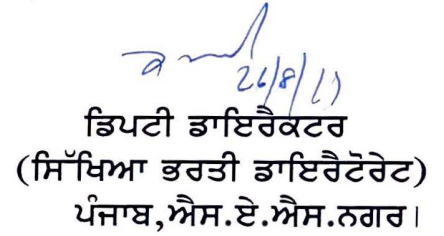 26/8/17
ਡਿਪਟੀ ਡਾਇਰੈਕਟਰ
(ਸਿੱਖਿਆ ਭਰਤੀ ਡਾਇਰੈਟੋਰੇਟ)
ਪੰਜਾਬ,ਐਸ.ਏ.ਐਸ.ਨਗਰ।